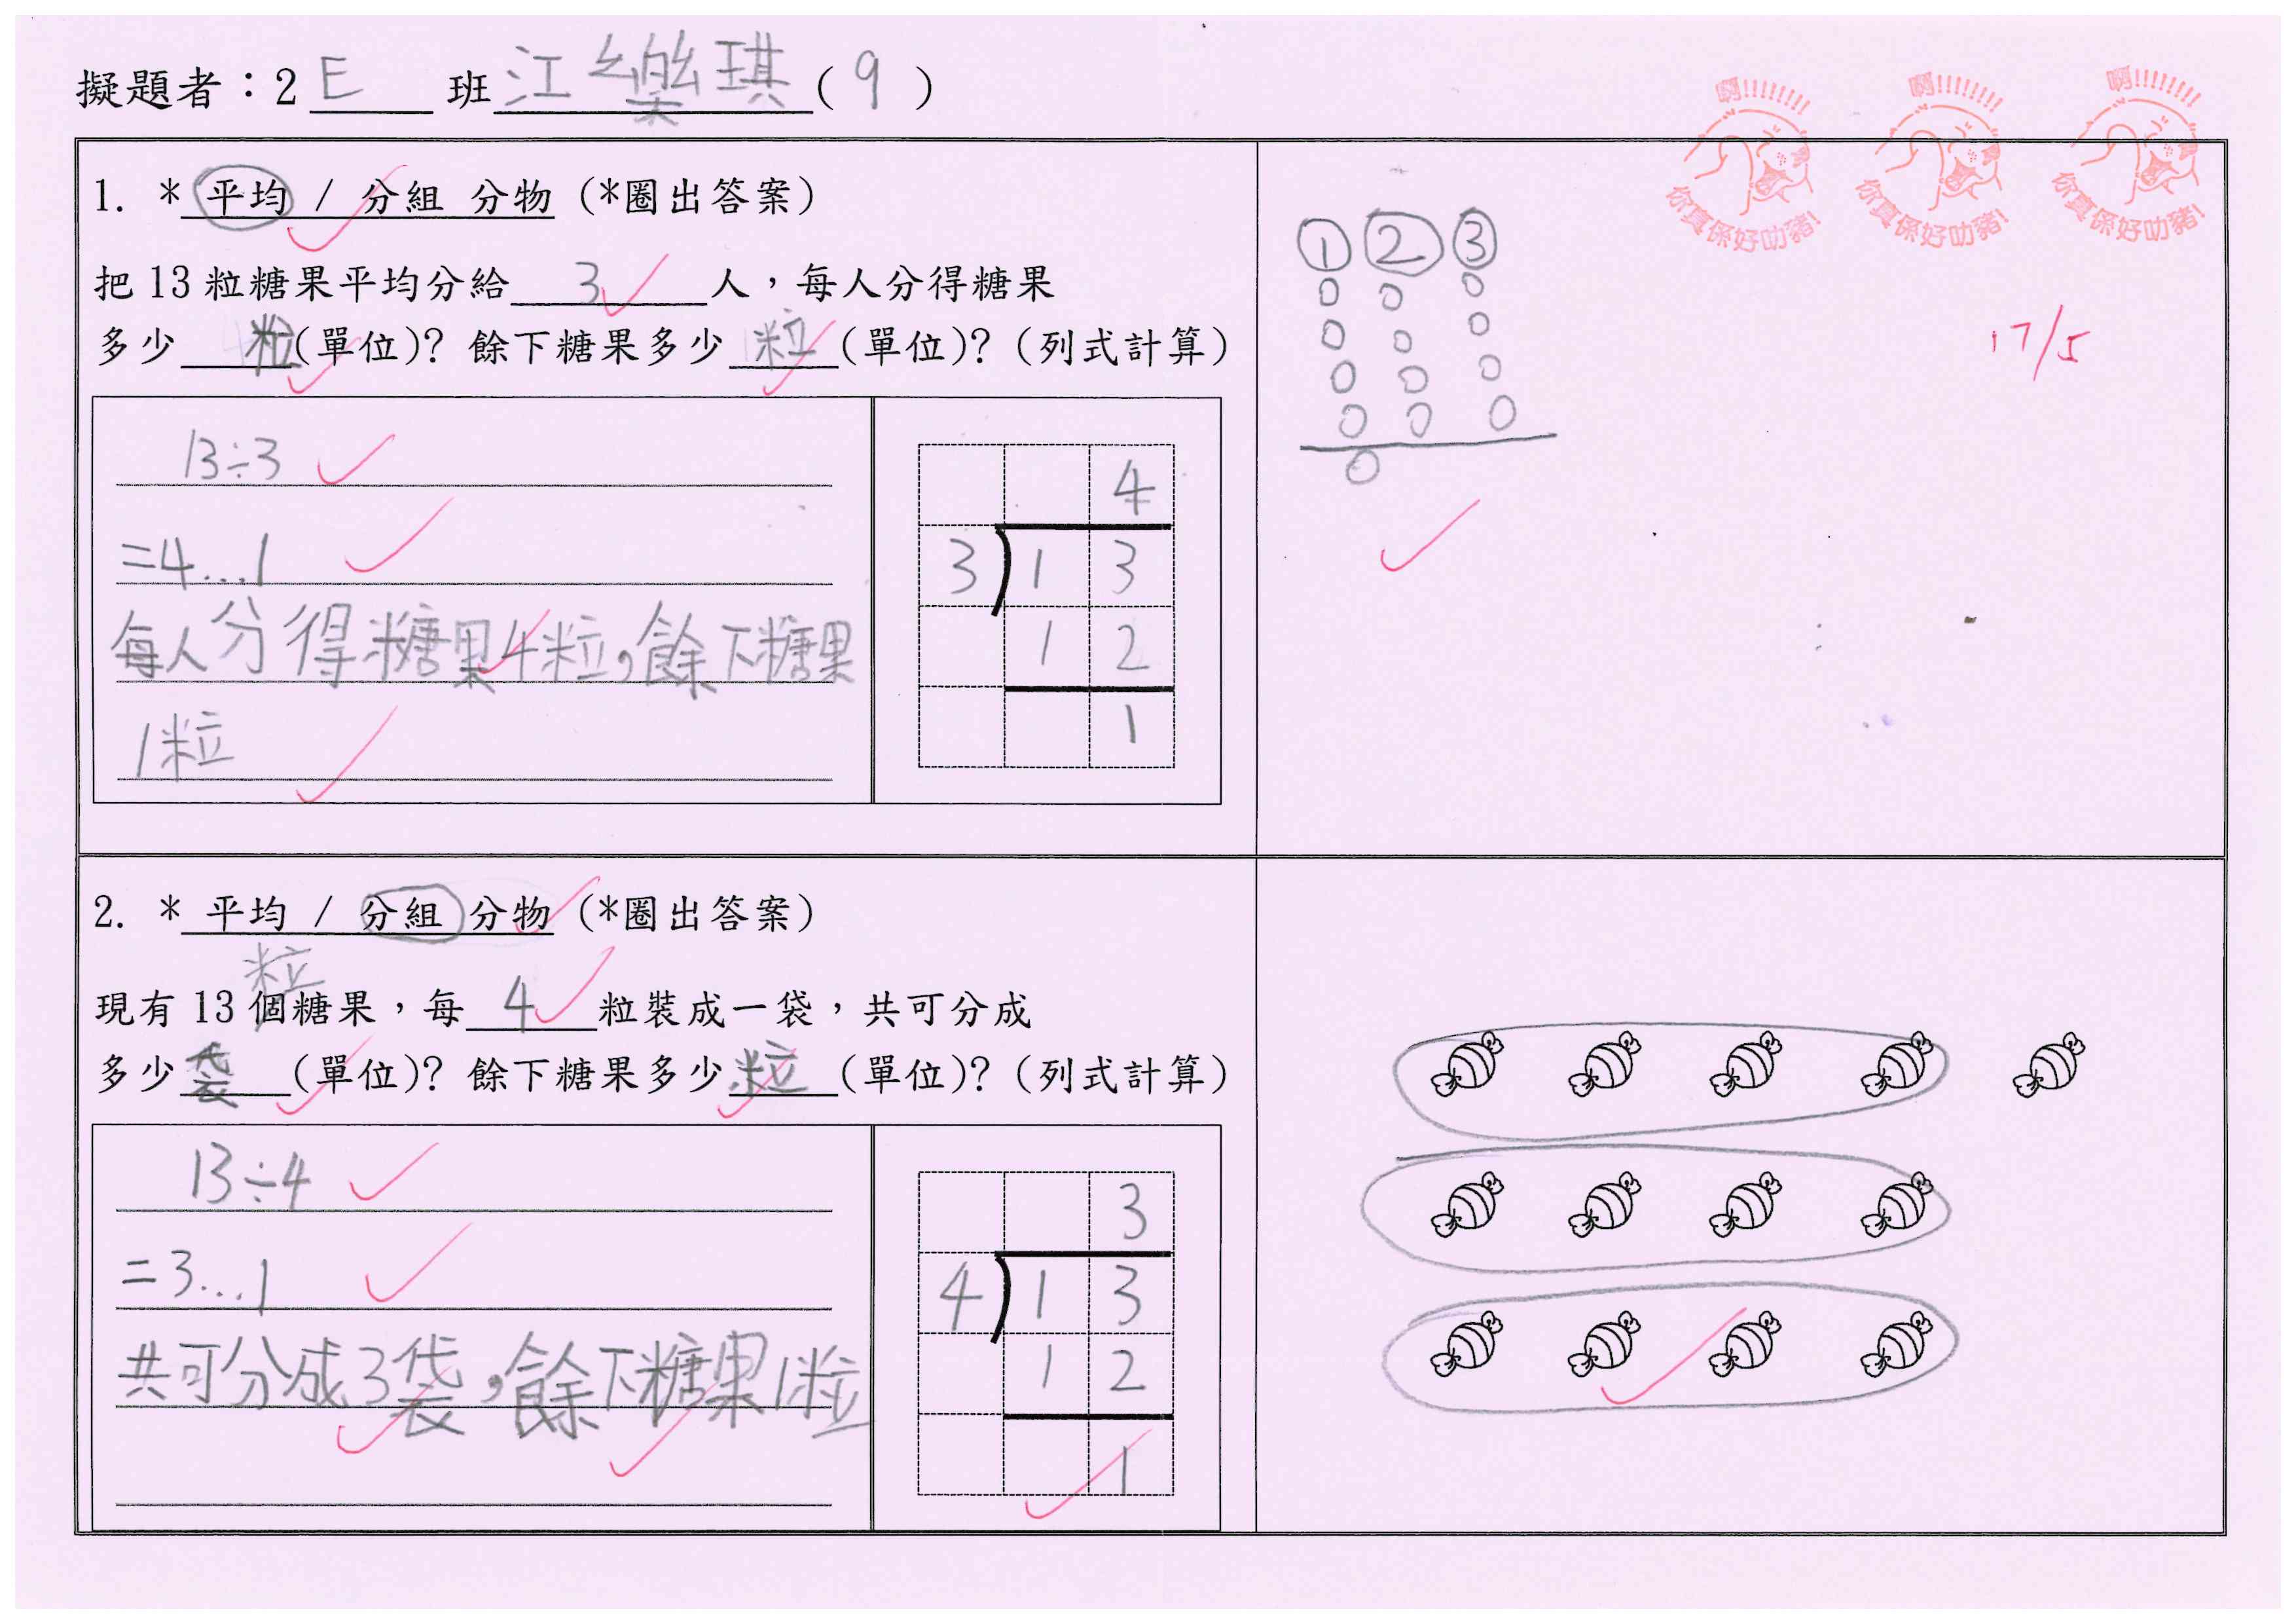 擬題者：2 E 班 江樂琪 ( 9 )
啊!!!!!!!! 啊!!!!!!!! 啊!!!!!!!!
你真係好叻豬! 你真係好叻豬! 你真係好叻豬!
1. * 平均 / 分組 分物 (*圈出答案)
把 13 粒糖果平均分給 3 人，每人分得糖果
多少 粒 (單位)? 餘下糖果多少 粒 (單位)? (列式計算)
13÷3
=4...1
每人分得糖果4粒,餘下糖果
1粒
4
3 1 3
1 2
1
1 2 3
17/5
2. * 平均 / 分組 分物 (*圈出答案)
粒
現有 13 個糖果，每 4 粒裝成一袋，共可分成
多少 袋 (單位)? 餘下糖果多少 粒 (單位)? (列式計算)
13÷4
=3...1
共可分成3袋,餘下糖果1粒
3
4 1 3
1 2
1